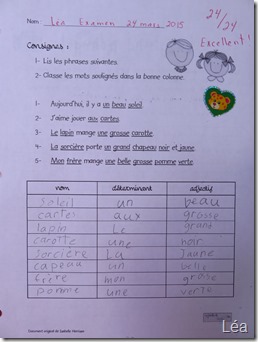 Nom: Léa Examen 24 mars 2015
24/24
Excellent!
Consignes :
1- Lis les phrases suivantes.
2- Classe les mots soulignés dans la bonne colonne.
1- Aujourd'hui, il y a un beau soleil.
2- J'aime jouer aux cartes.
3- Le lapin mange une grosse carotte.
4- La sorcière porte un grand chapeau noir et jaune
5- Mon frère mange une belle grosse pomme verte.
nom déterminant adjectif
Soleil un beau
cartes aux grosse
lapin Le grand
carotte une noir
sorcière La Jaune
capeau un belle
frère mon grose
pomme une verte
Léa